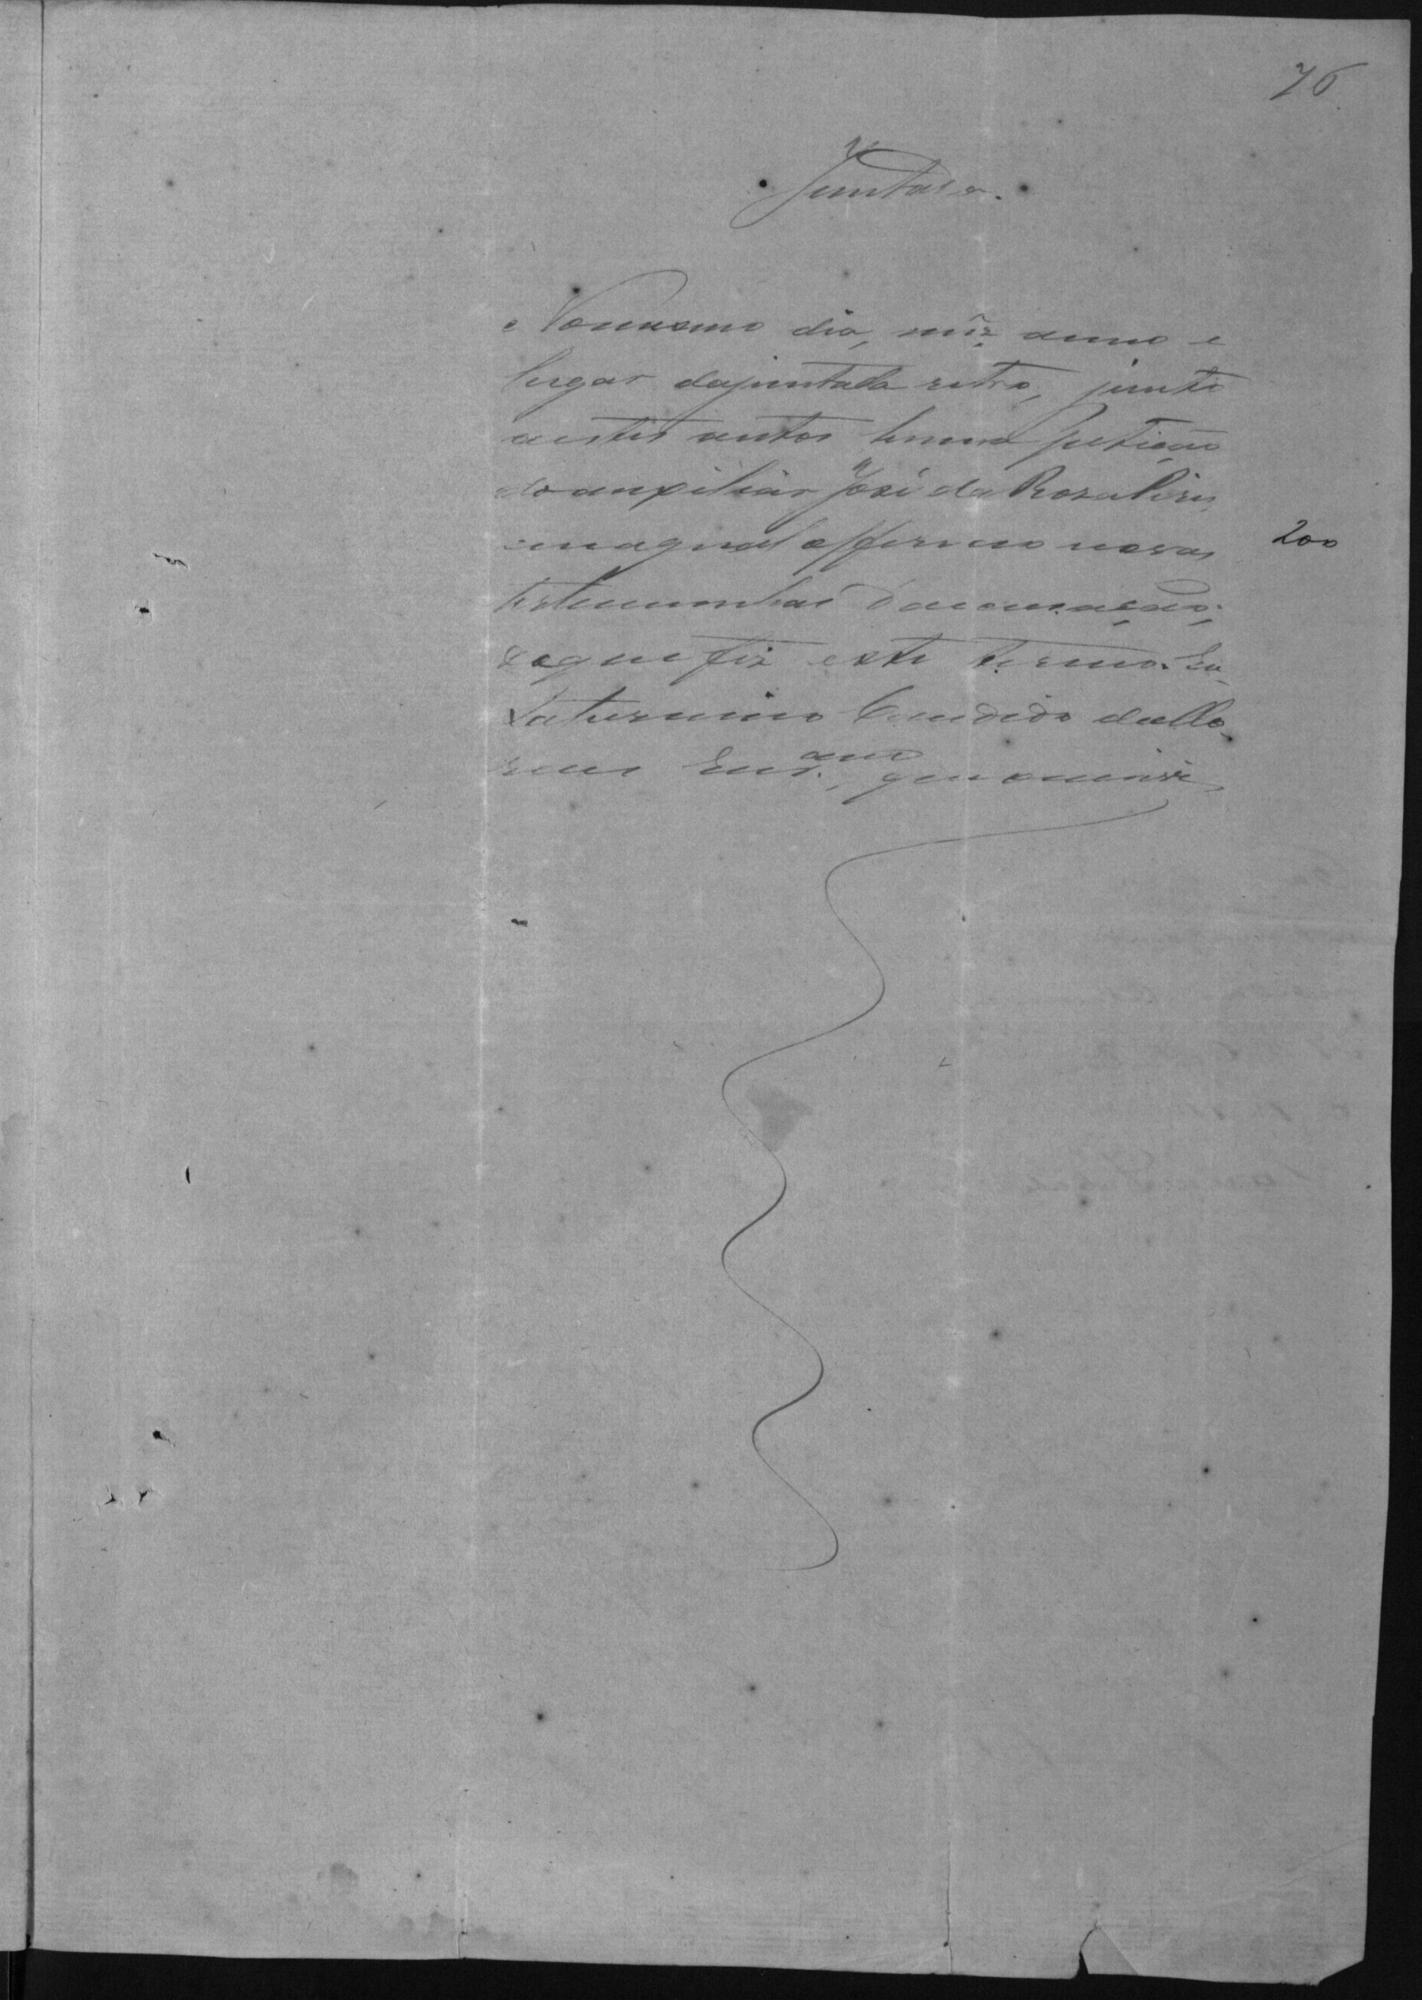 76
Juntada.
No mesmo dia, mez anno e
lugar dajuntada retro, junto
aestes autos huma petição
do auxiliar José da Rosa
emaqual offereceo novas
200
testemunhas
Doque fiz este termo. Eu
Saturnino Candido
Escr.am, que o escrevi